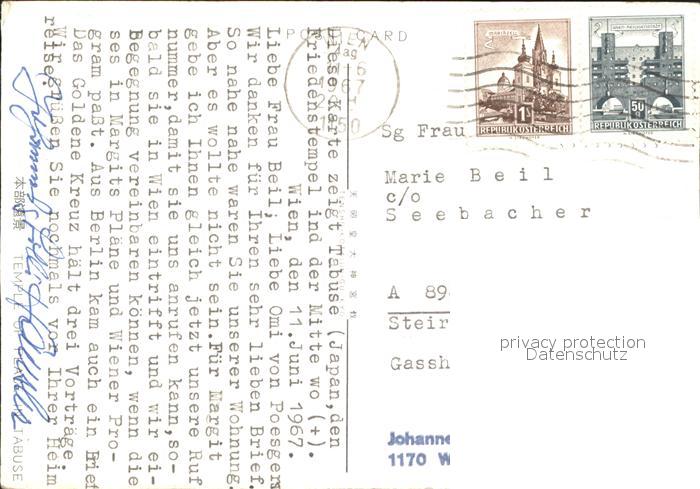 POSTCARD
Diese Karte zeigt Tabuse (Japan,den
Friedenstempel ind der Mitte wo (+).
Wien, den 11.Juni 1967.
Liebe Frau Beil, Liebe Omi von Poesgers
Wir danken für Ihren sehr lieben Brief.
So nahe nahe waren Sie unserer Wohnung.
Aber es wollte nicht sein.Für Margit
gebe ich Ihnen gleich jetzt unsere Ruf
nummer,damit sie uns anrufen kann,so-
bald sie in Wien eintrifft und wir ei-
Begegnung vereinbaren können, wenn die
ses in Margits Pläne und Wiener Pro-
gram paßt. Aus Berlin kam auch ein Brief
Das Goldene Kreuz hält drei Vorträge.
Wir grüßen Sie nochmals vor Ihrer Heim
reise.
本部遠景 TEMPLE OF TABUSE
MARIAZELL
1S
REPUBLIK ÖSTERREICH
WIEN-HEILIGENSTADT
50
g
REPUBLIK ÖSTERREICH
WIEN
67
Sg Frau
Marie Beil
c/o
Seebacher
A 89
Steir
Gassh
privacy protection
Datenschutz
Johanne
1170 W